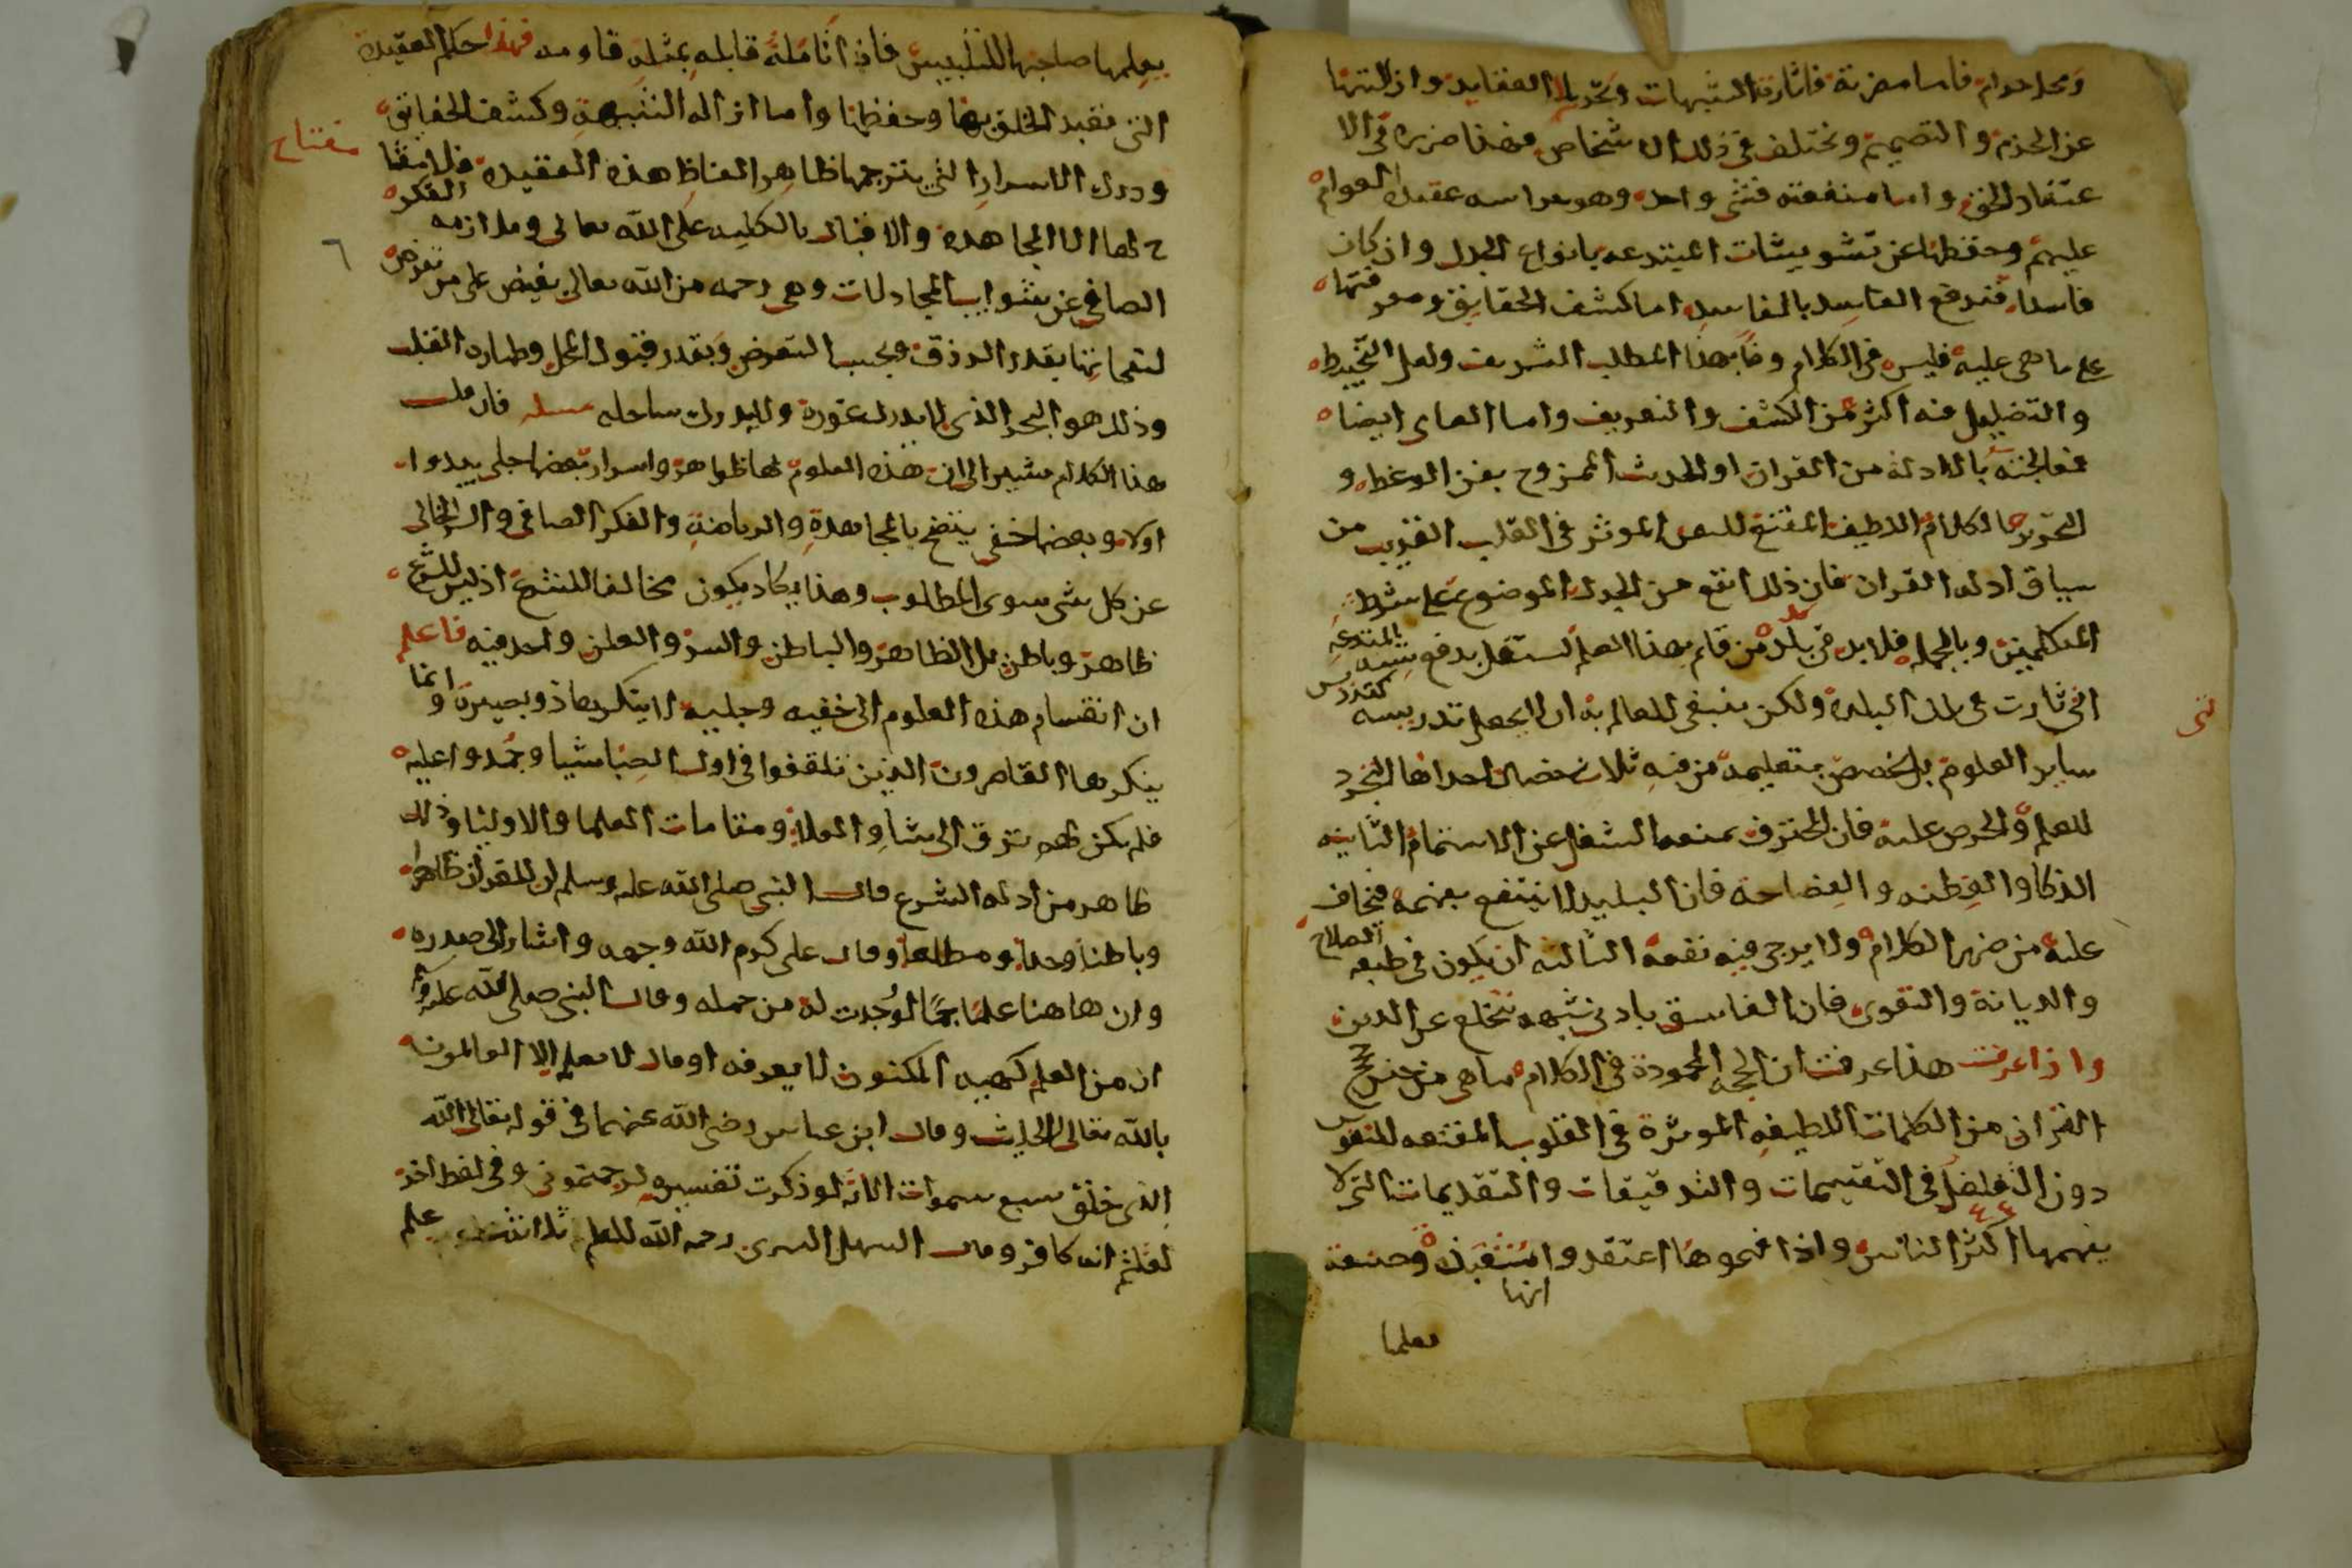 ومحل حرام فاما مضرته فاثارة الشبهات وتحريك العقايد وازالتها
عن الجزم والتصميم ويختلف في ذلك الاشخاص فهذا ضرره في الا
عتقاد الحق واما منفعته فشي واحد وهو حراسه عقيدة العوام
عليهم وحفظها عن تشويشات المبتدعه بانواع الجدل وان كان
فاسدا فندفع الفاسد بالفاسد اما كشف الحقايق ومعرفتها
على ما هي عليه فليس في الكلام وفا بهذا المطلب الشريف ولعل التخبيط
والتضليل فيه اكثر من الكشف والتعريف واما العامي ايضا
فمعالجته بالادلة من القران او الحديث الممزوج بفن الوعظ و
التحذير الكلام اللطيف المقنع للنفس الموثر في القلب القريب من
سياق ادلة القران فان ذلك انفع من الجدل الموضوع على شرط
المتكلمين وبالجمله فلا بد في بلد من قايم بهذا العلم يستقل بدفع شبه المبتدعه
التي ثارت في تلك البلدة ولكن ينبغي للعالم به ان لا يجعل تدريسه كتدريس
ساير العلوم بل يخصص بتعليمه من فيه ثلاث خصال احداها التجرد
للعلم والحرص عليه فان المحترف يمنعه الشغل عن الاستتمام الثانيه
الذكا والفطنه والفصاحة فان البليد لا ينتفع بفهمه فيخاف
عليه من ضرر الكلام ولا يرجى فيه نفعه الثالثه ان يكون في طبعه الصلاح
والديانة والتقوى فان الفاسق بادنى شبهه ينخلع عن الدين
واذا عرفت هذا عرفت ان الحجه المحمودة في الكلام ما هي من جنس حجج
القران من الكلمات اللطيفه الموثرة في القلوب المقنعه للنفوس
دون التغلغل في التقسيمات والتدقيقات والتقديمات التي لا
يفهمها اكثر الناس واذا فهموها اعتقدوا انها شعبذة وصنعة
تعلمها
يعلمها صاحبها للتلبيس فاذا قابله بمثله قاومه فهذا حكم العقيدة
التي تقيد الخلق بها وحفظها واما ازالة الشبهة وكشف الحقايق
ودرك الاسرار التي يترجمها ظاهر الفاظ هذه العقيدة فلا مفتا
مفتاح
ح لها الا المجاهدة والاقبال بالكليه على الله تعالى وملازمه الفكر
٦
الصافي عن شوايب المجادلات وهي رحمه من الله تعالى يفيض على من تعرض
لنفحاتها بقدر الرزق وبحسب التعرض وبقدر قبول المحل وطهاره القلب
وذلك هو البحر الذي لا يدرك غوره ولا يدرك ساحله مسله فان قلت
هذا الكلام مشير الى ان هذه العلوم لها ظواهر واسرار بعضها جلي يبدوا
اولا وبعضها خفي يتضح بالمجاهدة والرياضة والفكر الصافي والسر الخالي
عن كل شي سوى المطلوب وهذا يكاد يكون مخالفا للشرع اذ ليس للشرع
ظاهر وباطن بل الظاهر والباطن والسر والعلن واحد فيه فاعلم
ان انقسام هذه العلوم الى خفيه وجليه لا ينكرها ذو بصيرة وانما
ينكرها القاصرون الذين تلقفوا في اول الصبا شيا وجمدوا عليه
فلم يكن لهم ترق الى شاو العلا ومقامات العلما والاوليا وذلك
ظاهر من ادلة الشرع قال النبي صلى الله عليه وسلم ان للقران ظاهرا
وباطنا وحدا ومطلعا وقال علي كرم الله وجهه واشار الى صدره
وان هاهنا علما جما لو وجدت له من حمله وقال النبي صلى الله عليه
ان من العلم كهيه المكنون لا يعرفه او قال لا يعلمه الا العالمون
بالله تعالى الحديث وقال ابن عباس رضي الله عنهما في قوله تعالى الله
الذي خلق سبع سموات الاية لو ذكرت تفسيره لرجمتموني وفي لفظ اخر
لقلتم انه كافر وقال السهل التستري رحمه الله للعالم ثلاثة علم